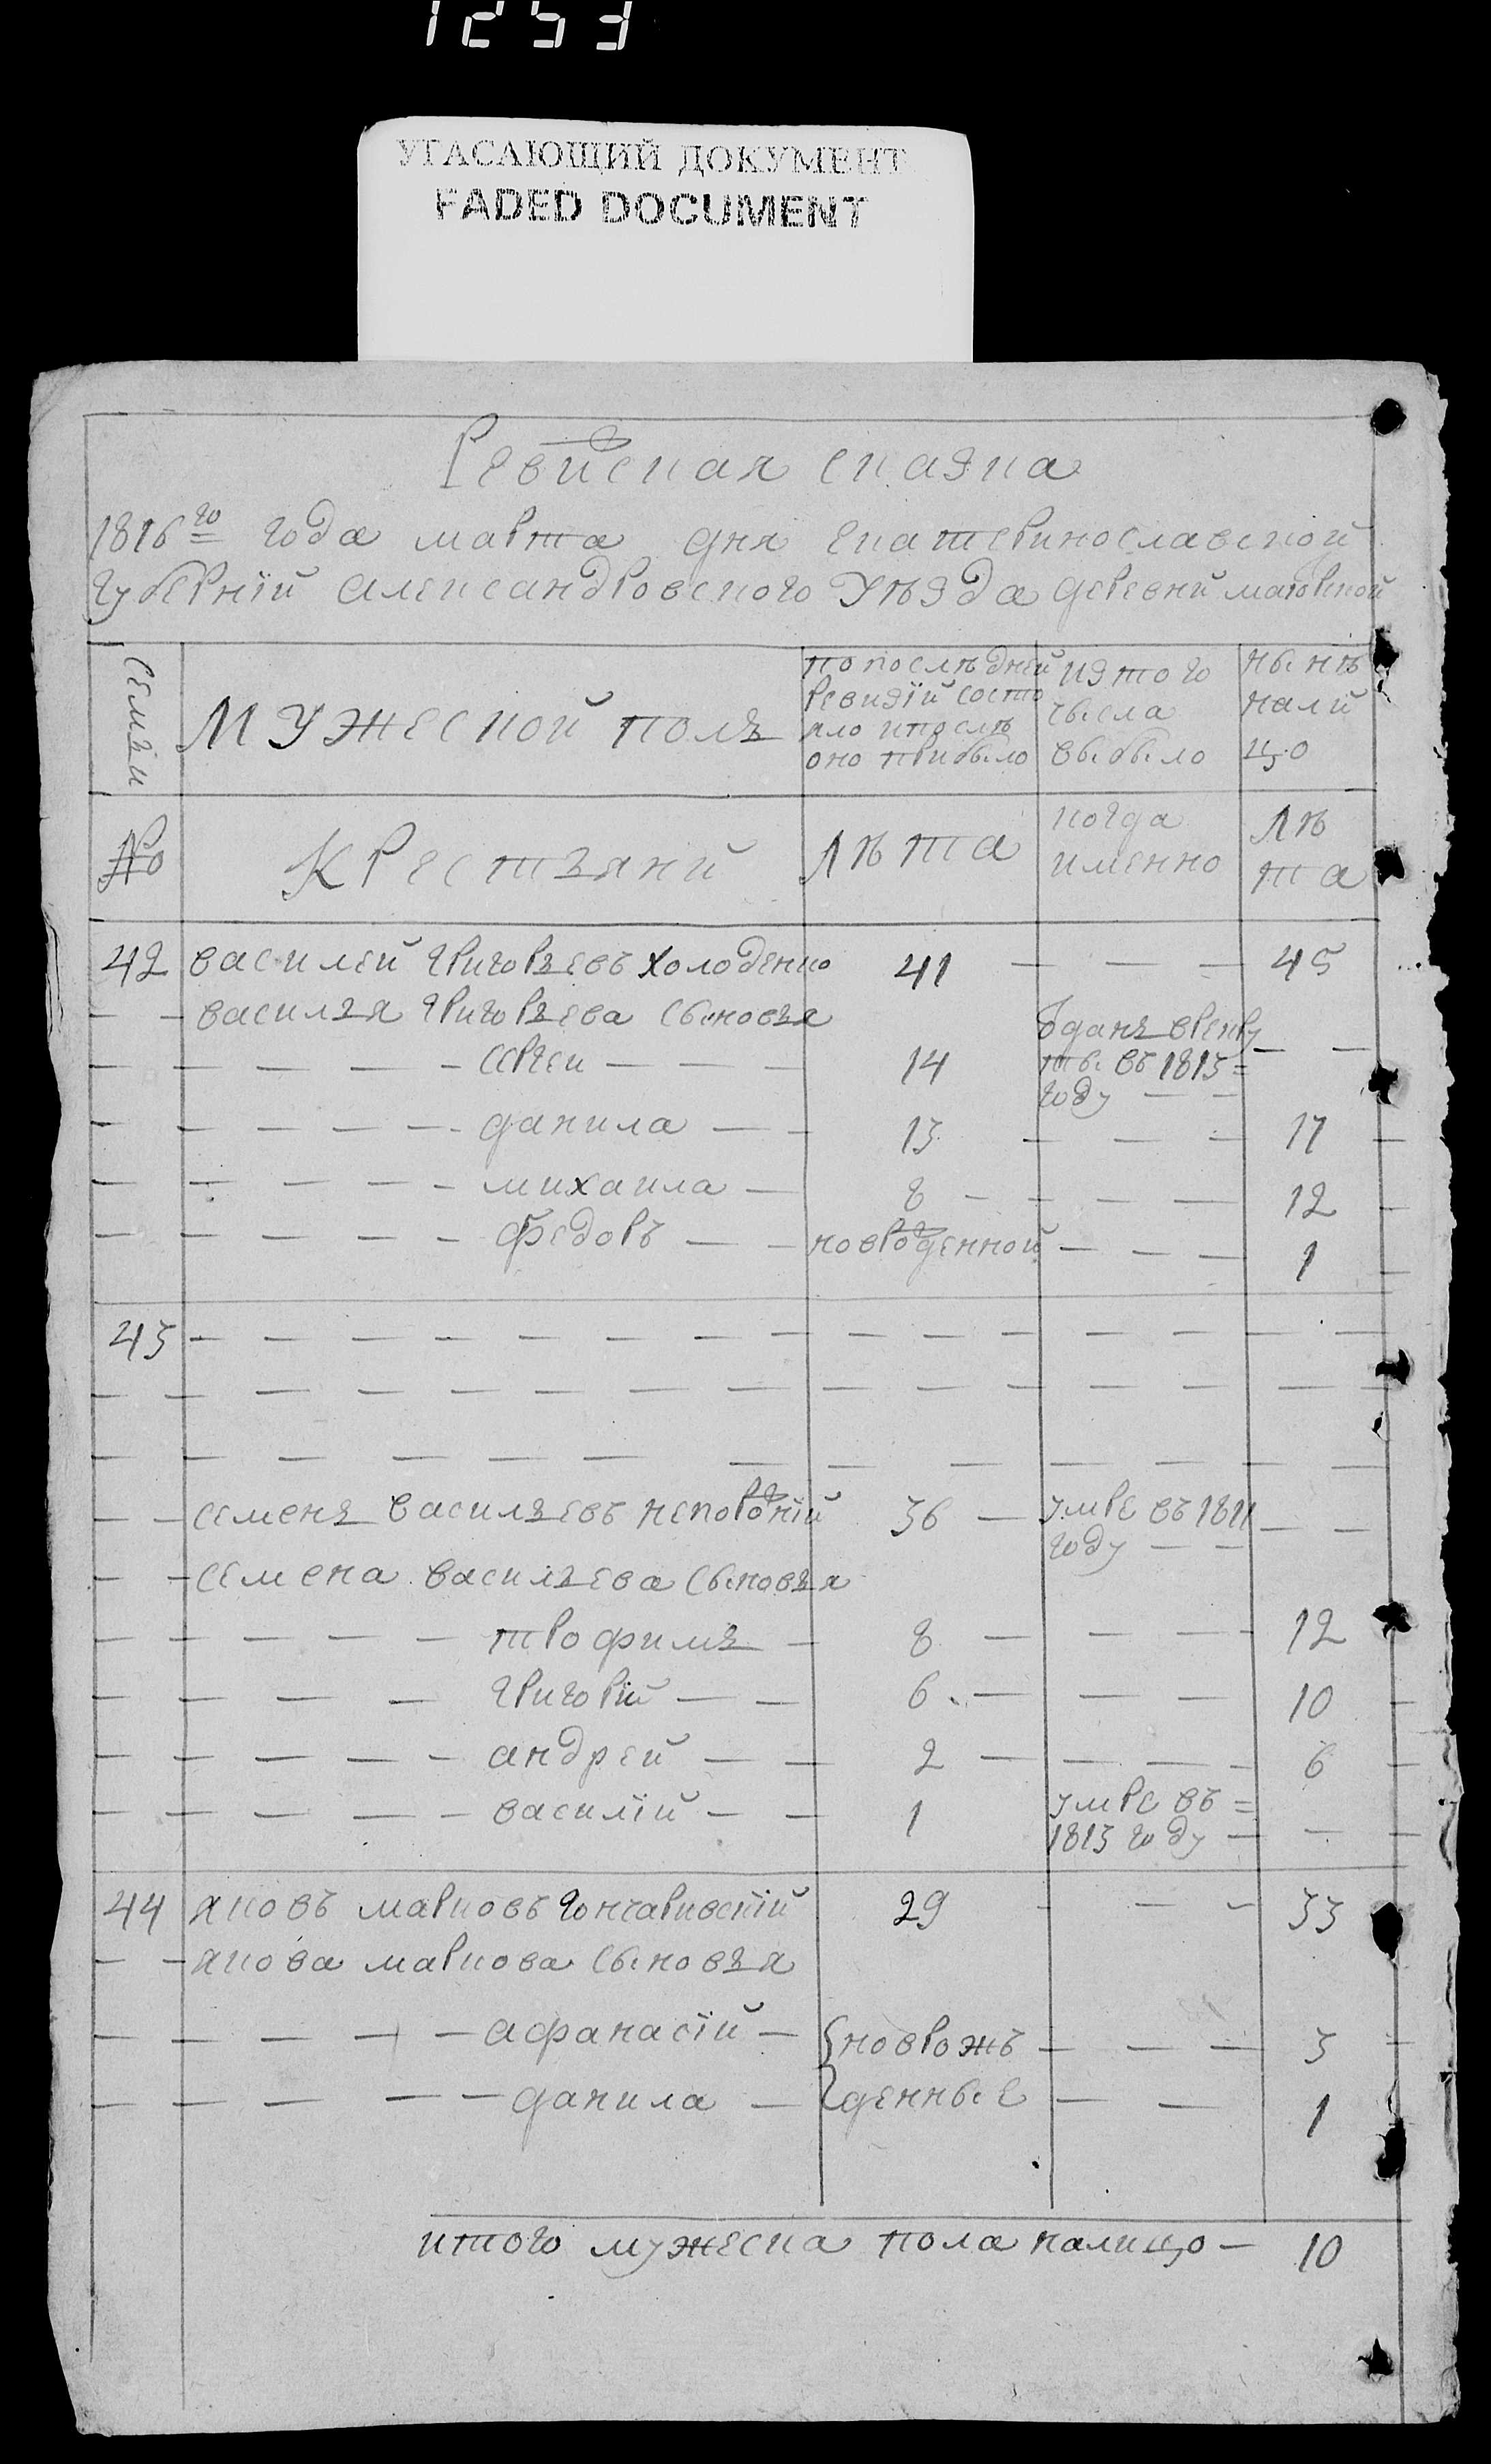 1253
УГАСАЮЩИЙ ДОКУМЕНТ
FADED DOCUMENT
Ревиская сказка
1816го года марта дня екатеринославской
губернїй александровского уѣзда деревни маюрской
Семьи
Мужеской полъ
попослѣдней ревизїй состояло ипослѣ оно прибыло
изтого чысла выбыло
нынѣ налицо
№
Крестьяний
лѣта
когда именно
лѣта
42 василей григорьевъ холоденко 41 — — — 45
— — василья григорьева сыновья
— — — — — сергеи — — — 14 ѿданъ врекруты въ 1813= году — — — —
— — — — — данила — — 13 — — — 17 —
— — — — — михаила — 8 — — — — 12
— — — — — федоръ — — новрожденной — — — 1 —
43 — — — — — — — — — — — — — — —
— — — — — — — — — — — — — — —
— — — — — — — — — — — — — — —
— — семенъ васильевъ непорожнїй 36 — умре въ 1811 году — — — —
— — семена васильева сыновья
— — — — — трофимъ — 8 — — — — 12
— — — — григорїй — — 6 — — — 10 —
— — — — — андрей — — 2 — — — — 6 —
— — — — — василїй — — 1 умре въ= 1813 году — — —
44 яковъ марковъ гончаривскїй 29 — — — 33
— — якова маркова сыновья
— — — — — афанасїй — {новрожъ — — — 3 —
— — — — — данила — {денные — — 1
итого мужеска пола налицо — 10